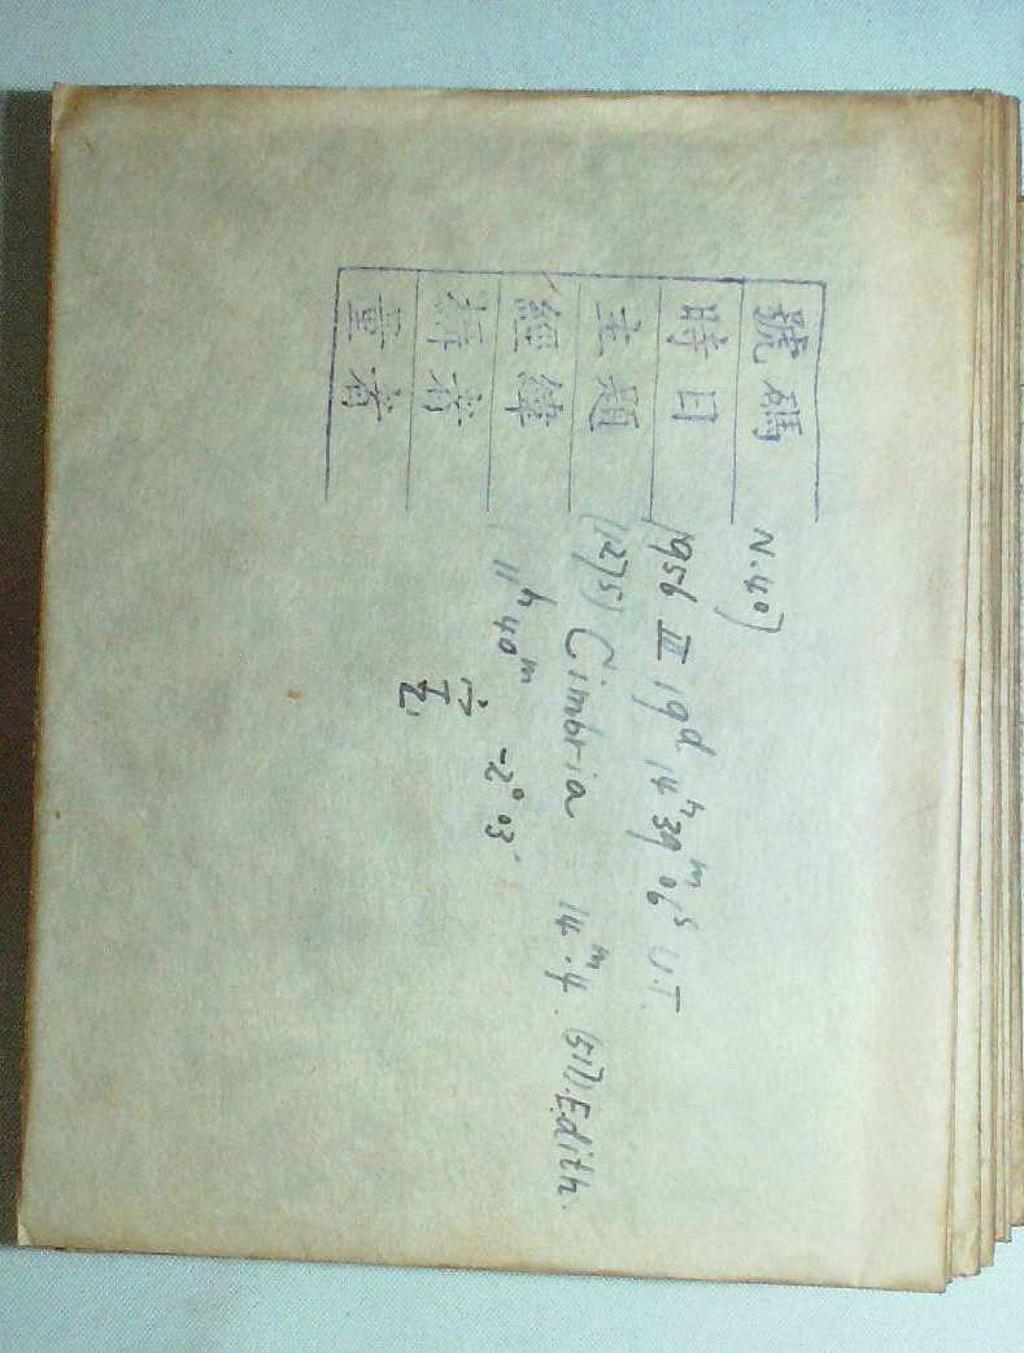 號碼 N.407
時日 1956 III 19d 14h 39m 06s U.T.
主題 (1275) Cimbria 14m.4. (517). Edith.
經緯 11h 40m -2° 03'